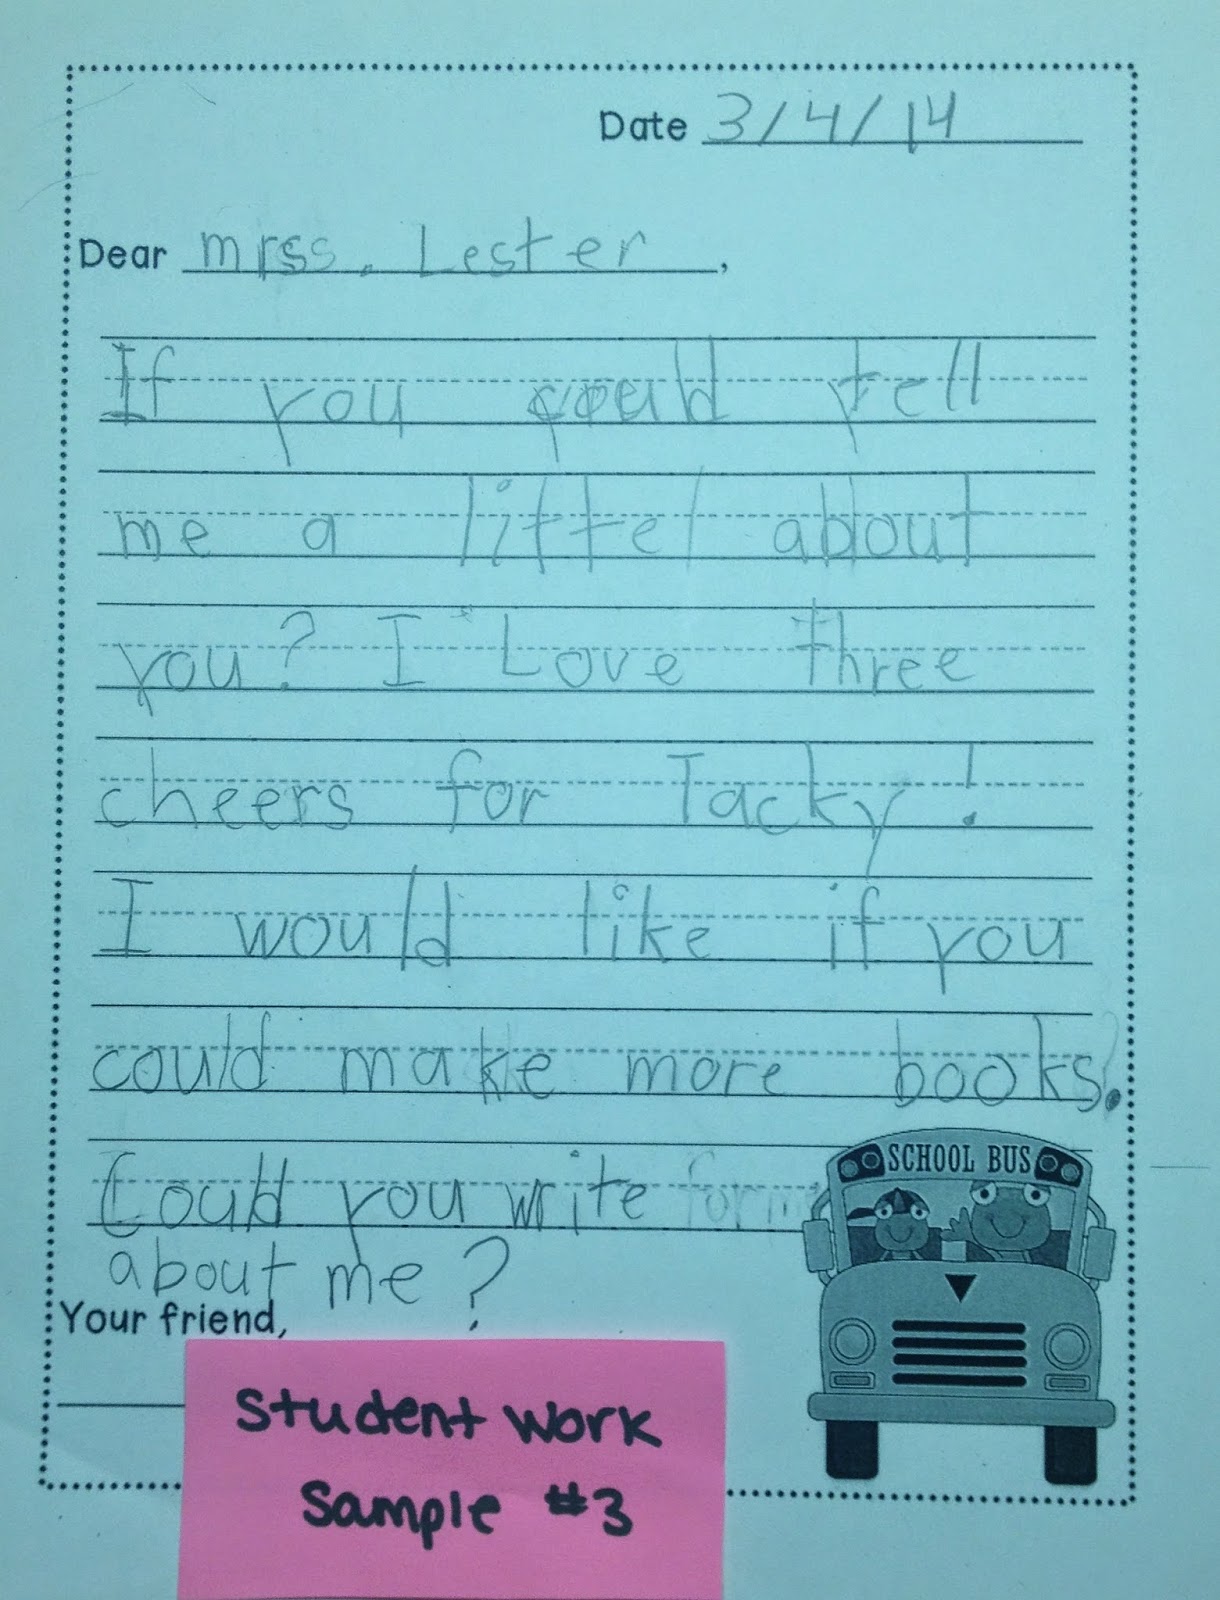 Date 3/4/14
Dear mrss. Lester,
If you could tell
me a littel about
you? I Love three
cheers for Tacky!
I would like if you
could make more books.
Could you write
about me?
SCHOOL BUS
Your friend,
Student Work
Sample #3